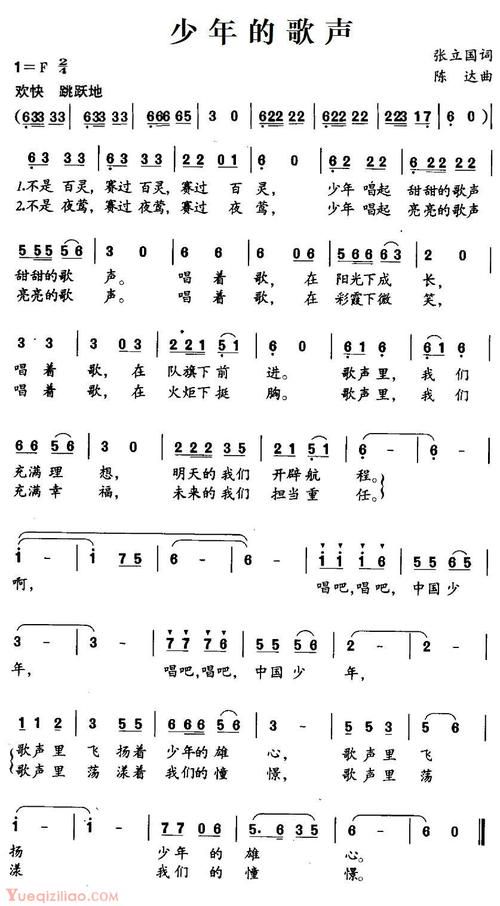 少年的歌声
张立国词
1=F 2/4
陈 达曲
欢快 跳跃地
(633 33 | 633 33 | 666 65 | 3 0 | 622 22 | 622 22 | 223 17 | 6 0) |
6 3 3 3 | 6 3 3 3 | 2 2 0 1 | 6 0 | 6 22 2 | 6 22 22 |
1.不是 百灵,赛过 百灵,赛过 百 灵, 少年 唱起 甜甜的歌声
2.不是 夜莺,赛过 夜莺,赛过 夜 莺, 少年 唱起 亮亮的歌声
5 55 5 6 | 3 0 | 6 6 | 6 05 | 5 66 6 5 | 2 0 |
甜甜的歌 声。 唱 着 歌,在 阳光下成 长,
亮亮的歌 声。 唱 着 歌,在 彩霞下微 笑,
3 3 | 3 03 | 2 21 5 1 | 6 0 | 6 1 6 | 6 1 6 |
唱 着 歌,在 队旗下前 进。 歌声里, 我 们
唱 着 歌,在 火炬下挺 胸。 歌声里, 我 们
6 6 5 6 | 3 0 | 2 22 35 | 2 1 5 1 | 6 - | 6 - |
充满理 想, 明天的我们 开辟航 程。
充满幸 福, 未来的我们 担当重 任。
1 - | 1 - | 1 75 | 6 - | 6 - | 1 1 1 6 | 5 5 6 5 |
啊, 唱吧,唱吧, 中国少
3 - | 3 - | 7 7 7 6 | 5 5 3 5 | 2 - | 2 - |
年, 唱吧,唱吧, 中国少 年,
1 1 2 | 3 5 5 | 6 66 5 6 | 3 0 | 3 5 5 | 2 2 |
歌声里 飞 扬着 少年的雄 心, 歌声里 飞
歌声里 荡 漾着 我们的憧 憬, 歌声里 荡
1 - | 1 - | 7 7 0 6 | 5. 6 3 5 | 6 - | 6 0 ‖
扬 少年 的 雄 心。
漾 我们 的 憧 憬。
Yueqiziliao.com